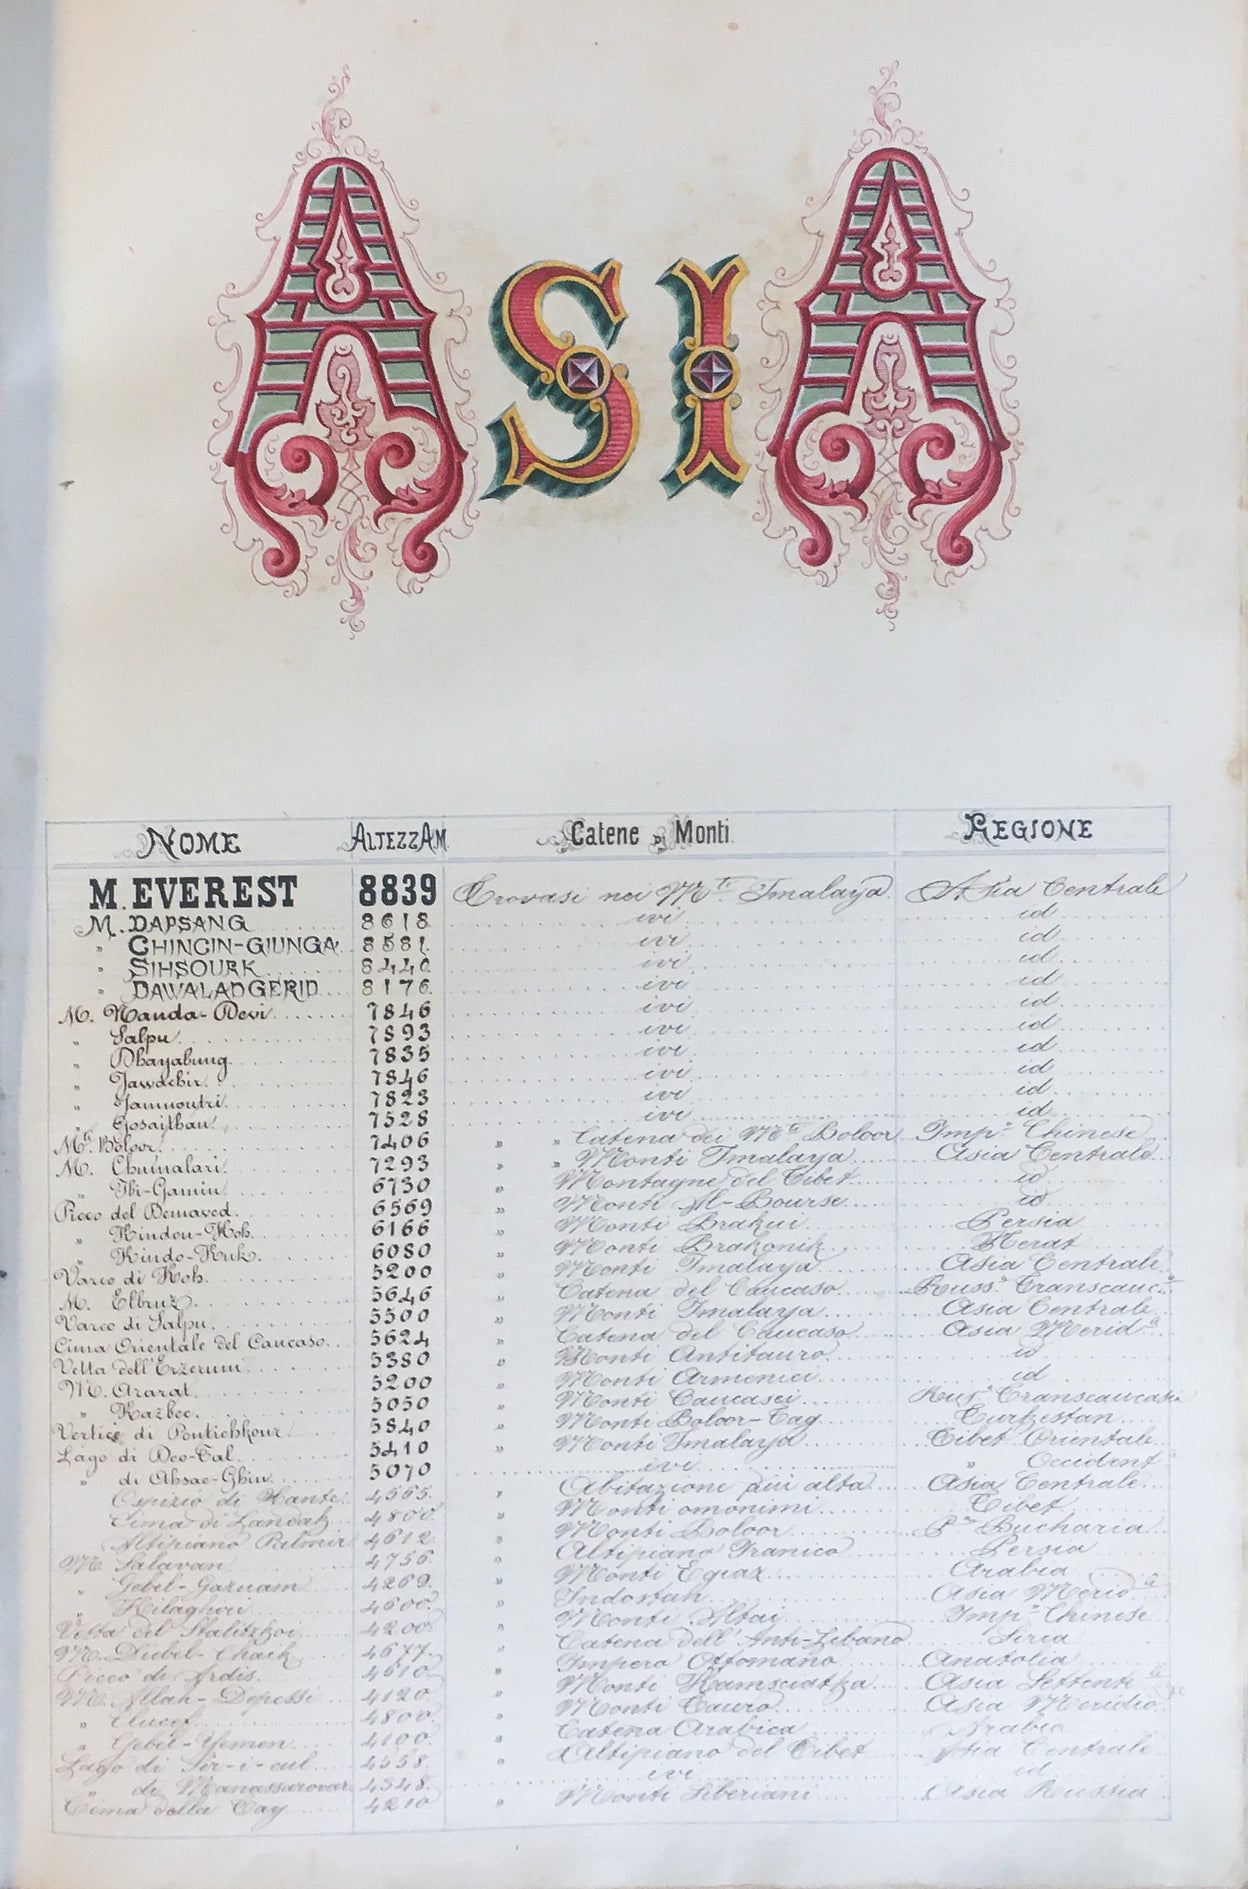 ASIA
NOME ALTEZZA M. Catene di Monti REGIONE
M. EVEREST 8839 Trovasi nei M.ti Imalaya Asia Centrale
M. DAPSANG 8618 ivi id
" CHINCIN-GIUNGA 8581 ivi id
" SIHSOURK 8440 ivi id
" DAWALADGERID 8176 ivi id
M. Nanda-Devi 7846 ivi id
" Salpu 7893 ivi id
" Dhayabung 7835 ivi id
" Jawdehir 7846 ivi id
" Jamnoutri 7823 ivi id
" Gosaithau 7528 ivi id
M.ti Boloor 7406 " " Catena dei M.ti Boloor Imp.o Chinese
M. Chumalari 7293 " " Monti Imalaya Asia Centrale
" Ibi-Gamin 6730 " Montagne del Tibet id
Picco del Demaved 6569 " Monti Al-Bourse id
" Hindou-Koh 6166 " Monti Brakui Persia
" Kindo-Kuk 6080 " Monti Brakonik Herat
Varco di Koh 5200 " Monti Imalaya Asia Centrale
M. Elbruz 5646 " Catena del Caucaso Russ.a Transcauc.a
Varco di Salpu 5500 " Monti Imalaya Asia Centrale
Cima Orientale del Caucaso 5624 " Catena del Caucaso Asia Merid.a
Vetta dell'Erzerum 5380 " Monti Antitauro id
M. Ararat 5200 " Monti Armenici id
" Kazbec 5050 " Monti Caucasei Rus.a Transcaucasia
Vertice di Poutichkour 5840 " Monti Boloor-Tag Turkestan
Lago di Deo-Tal 5410 " Monti Imalaya Tibet Orientale
" di Ahsae-Ghin 5070 ivi " Occident.e
Ospizio di Hante 4565 " Abitazione più alta Asia Centrale
Cima di Landak 4800 " Monti omonimi Tibet
Altipiano Palmir 4612 " Monti Boloor P.a Bucharia
M. Salavan 4756 " Altipiano Iranico Persia
" Gebel-Gaznam 4269 " Monti Egiaz Arabia
" Kilaghori 4600 " Indostan Asia Merid.le
Vetta del Stalitzkoi 4200 " Monti Altai Imp.o Chinese
M. Djebel-Cheik 4677 " Catena dell'Anti-Libano Siria
Picco di Ardis 4610 " Impero Ottomano Anatolia
M. Allah-Depessi 4120 " Monti Kamsciatka Asia Settent.le
" 4800 " Monti Tauro Asia Meridio.le
" Gebel-Yemen 4100 " Catena Arabica Arabia
Lago di Sir-i-cul 4558 " Altipiano del Tibet Asia Centrale
" di Manassarovar 4548 ivi id
Cima della Tay 4210 " Monti Siberiani Asia Russia